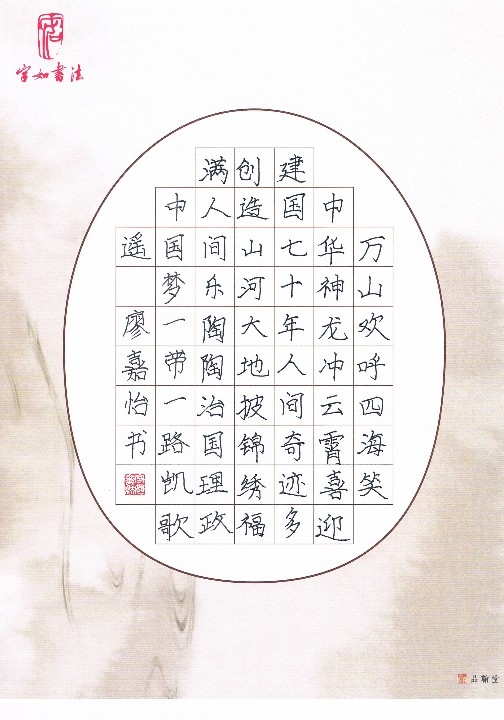 字如書法
万山欢呼四海笑
中华神龙冲云霄喜迎
建国七十年人间奇迹多
创造山河大地披锦绣福
满人间乐陶陶治国理政
中国梦一带一路凯歌
遥 廖嘉怡书
品翰堂